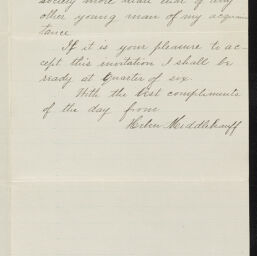 society more than that of any
other young man of my acquain
tance.
If it is your pleasure to ac-
cept this invitation I shall be
ready at quarter of six.
With the best compliments
of the day from
Helen Middlekauff